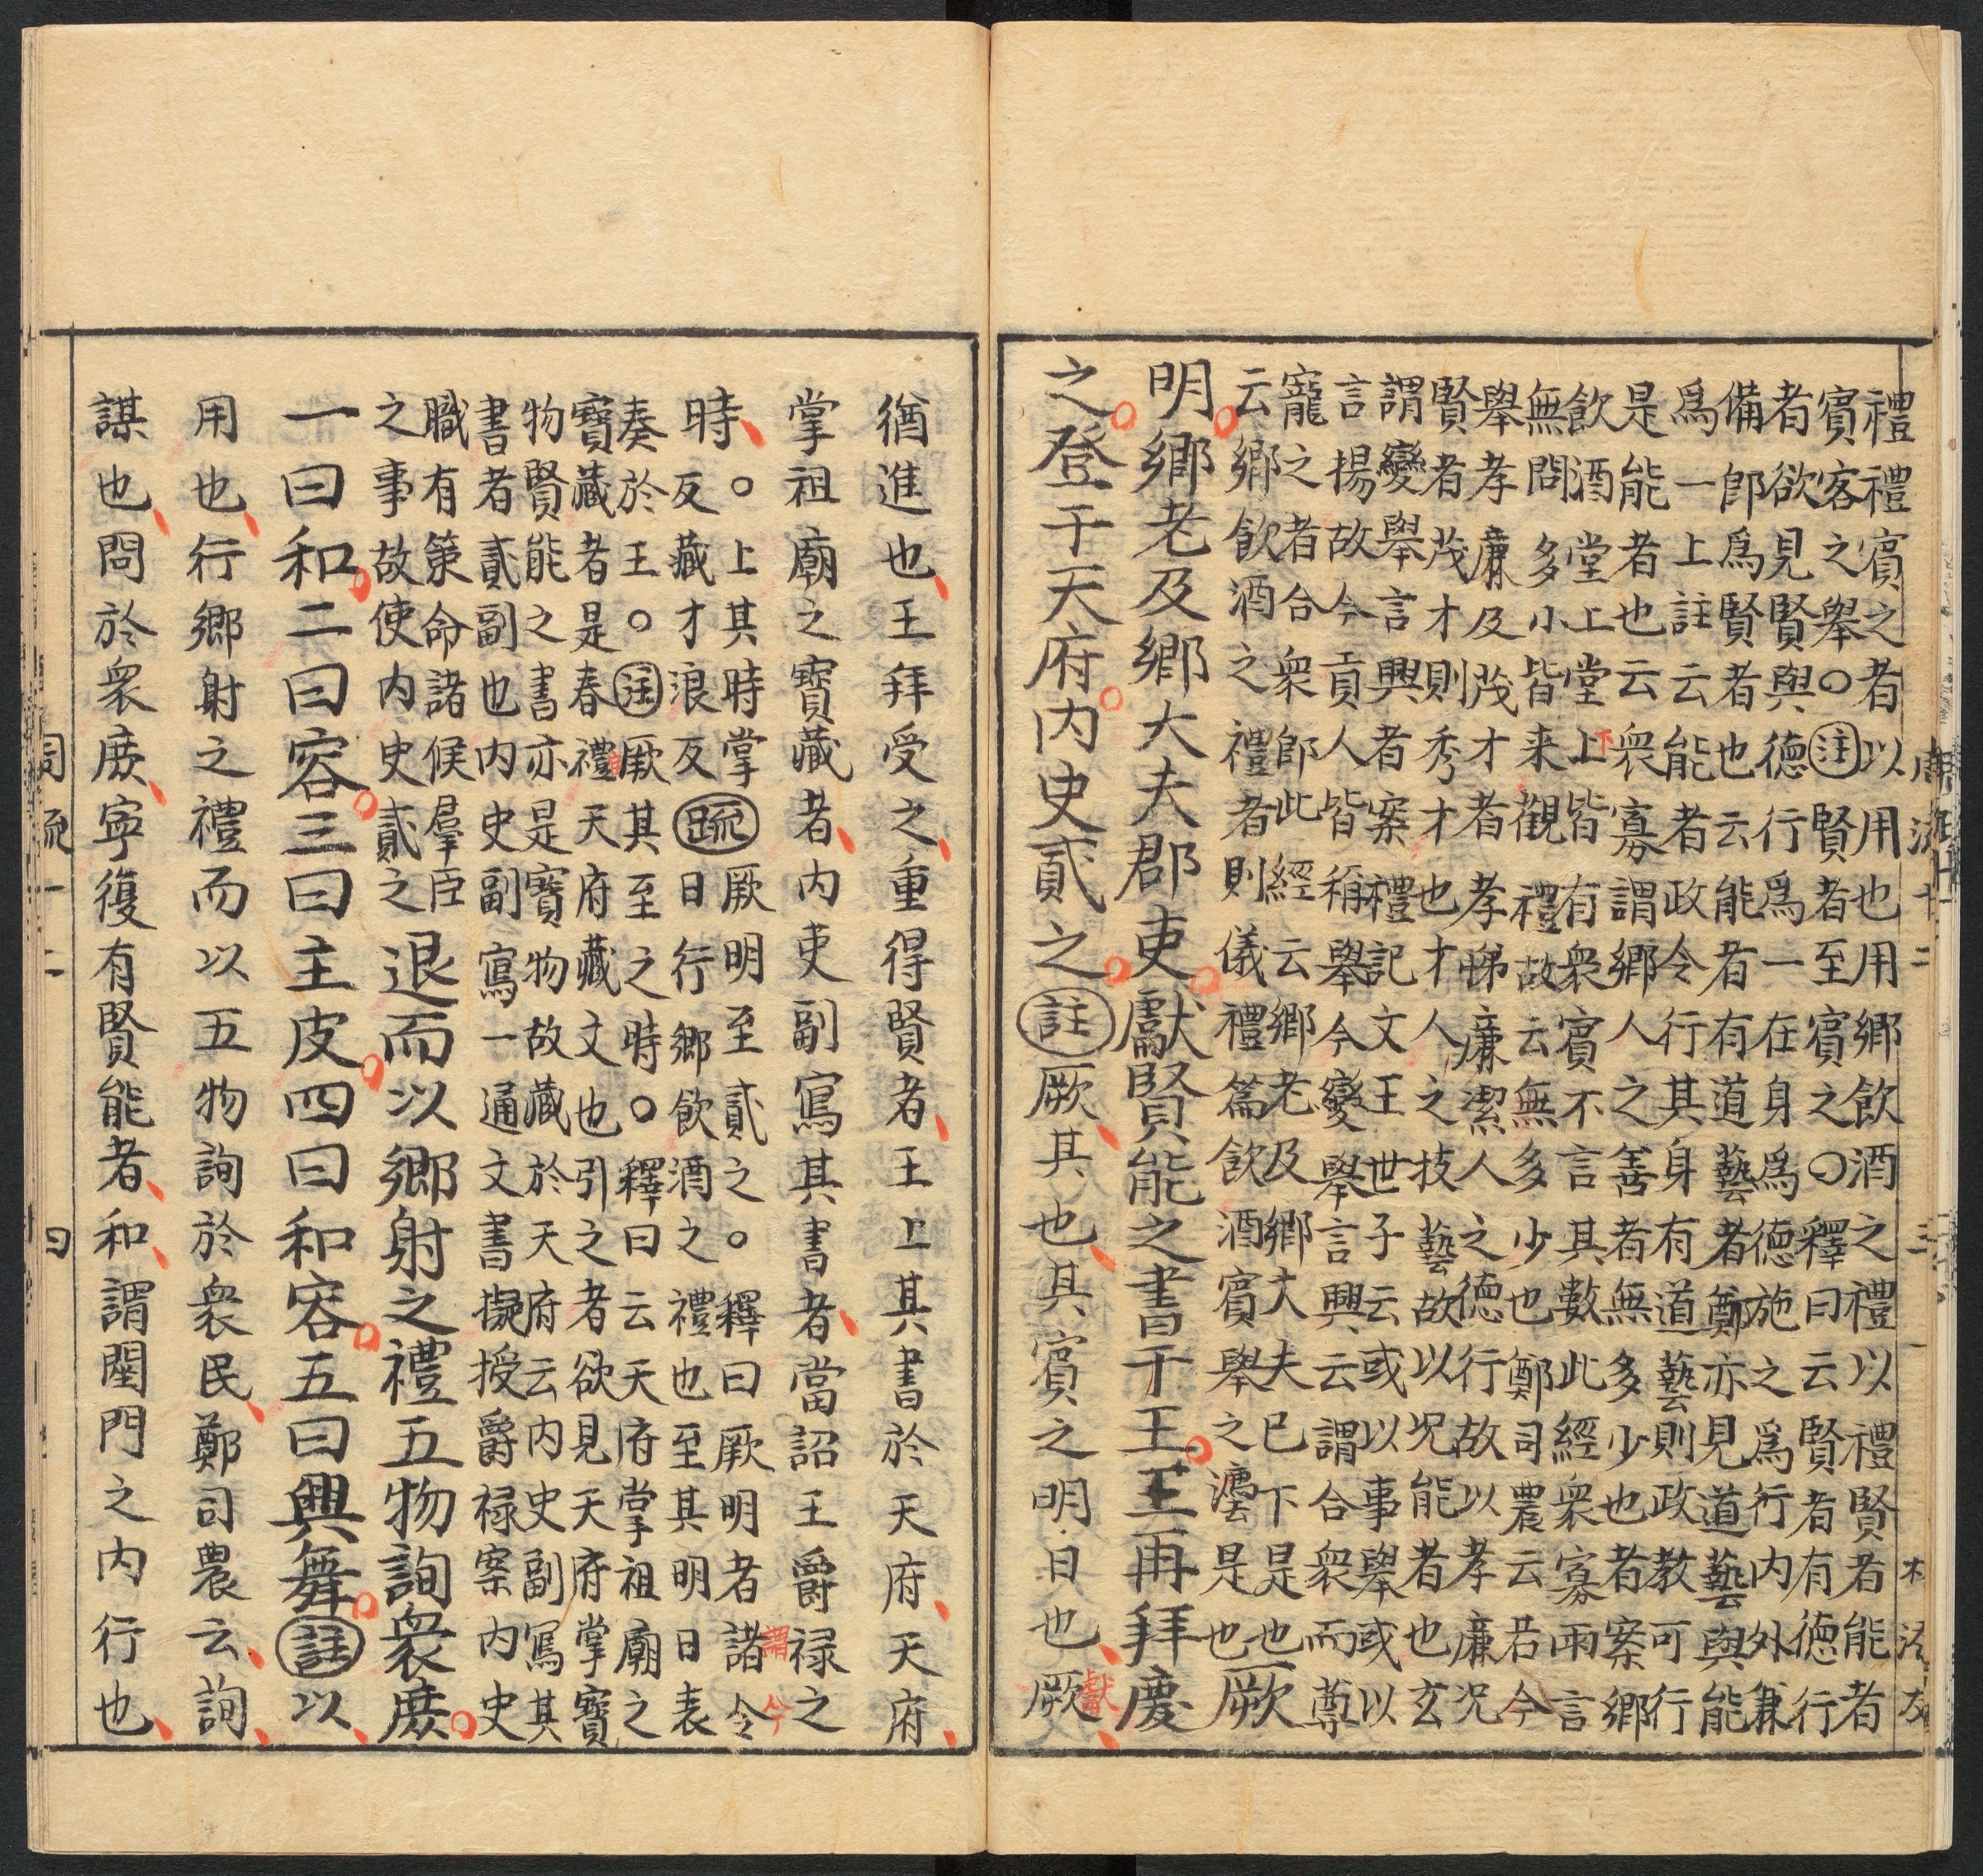 禮禮賓之者以用也用鄉飲酒之禮以禮賢者能者
賓客之舉○註賢者至賓之○釋曰云賢者有德行
者欲見賢與德行爲一在身爲德施之爲行內外兼
備即爲賢者也云能者有道藝者鄭亦見道藝與能
爲一上註云能者政令行其身有道藝則政教可行
是能者也云衆寡謂鄉人之善者無多少也者案鄉
飲酒堂上堂上皆有衆賓不言其數此經衆寡兩言
無問多小皆来觀禮故云無多少也鄭司農云若今
舉孝廉及茂才者孝悌廉潔人之德行故以孝廉况
賢者茂才則秀才也才人之技藝故以况能者也玄
謂變舉言興者案禮記文王世子云或以事舉或以
言揚故今貢人皆稱舉今變舉言興云謂合衆而尊
寵之者合衆即此經云鄉老及鄉大夫巳下是也
云鄉飲酒之禮者則儀禮篇飲酒賓舉之灋是也厥
明鄉老及鄉大夫郡吏獻賢能之書于王王再拜慶
之登于天府內史貳之註厥其也其賓之明日也厥
猶進也王拜受之重得賢者王上其書於天府天府
掌祖廟之寶藏者內吏副寫其書者當詔王爵禄之
時○上其時掌厥明至貳之○釋曰厥明者諸令
反藏才浪反疏日行鄉飲酒之禮也至其明日表
奏於王○註厥其至之時○釋曰云天府掌祖廟之
寶藏者是春禮天府藏文也引之者欲見天府掌寶
物賢能之書亦是寶物故藏於天府云內史副寫其
書者貳副也內史副寫一通文書擬授爵禄案內史
職有策命諸侯羣臣
之事故使內史貳之退而以鄉射之禮五物詢衆庶
一曰和二曰容三曰主皮四曰和容五曰興舞註以
用也行鄉射之禮而以五物詢於衆民鄭司農云詢
謀也問於衆庶寧復有賢能者和謂閨門之內行也